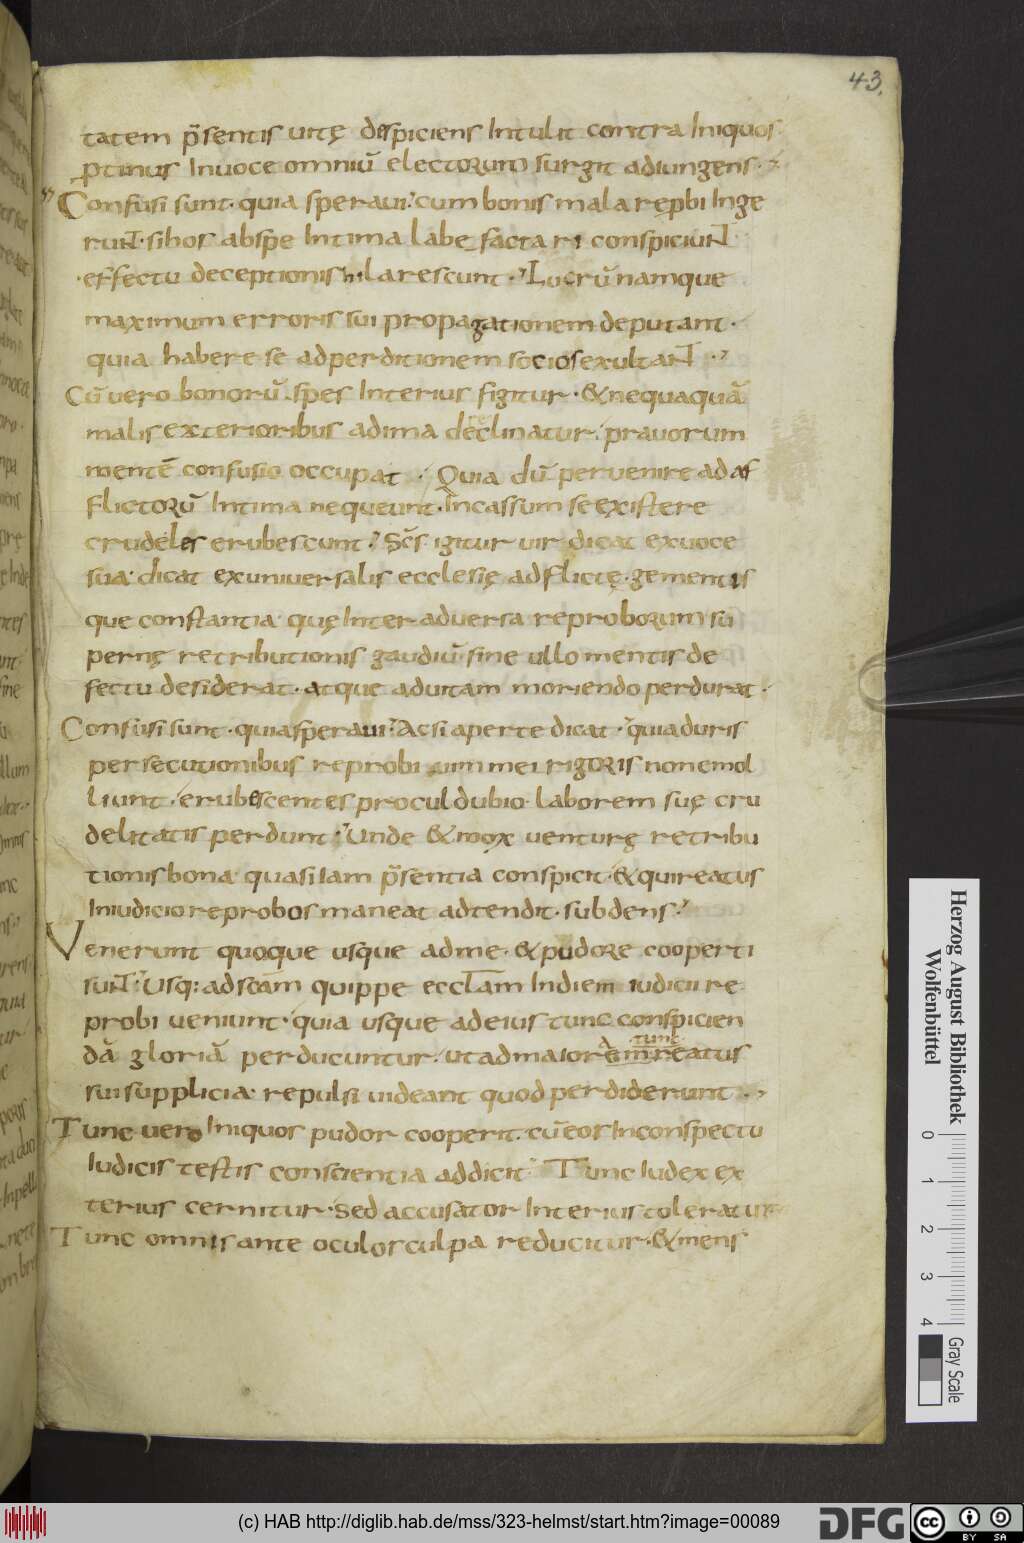 43.
tatem p̄sentis uitę despiciens Intulit contra Iniquos
ꝓtinus Inuoce omniū electorum surgit adiungens·
Confusi sunt· quia speraui· cum bonis mala repbi Inge
runt· sihos abspe Intima labefactari conspiciunt
effectu deceptionis hilarescunt· Lucrū namque
maximum erroris sui propagationem deputant·
quia habere se adperditionem socios exultant·
Cū uero bonorū spes Interius figitur· & nequaquā
malis exterioribus adima declinatur· prauorum
mentē confusio occupat· Quia dū peruenire adaf
flictorū Intima nequeunt· Incassum se existere
crudeles erubescunt· Sc̄s igitur uir dicat exuoce
sua· dicat exuniuersalis ecclesię adflictę· gementis
que constantia· quę Inter aduersa reproborum su
pernę retributionis gaudiū· sine ullo mentis de
fectu desiderat· atque aduitam moriendo perdurat·
Confusi sunt· quia speraui· Acsi aperte dicat· quia duris
persecutionibus reprobi uim mei rigoris non emol
liunt· erubescentes procul dubio laborem suę cru
delitatis perdunt· Unde & mox venturę retribu
tionis bona· quasi Iam p̄sentia conspicit· & qui reatus
Iniudicio reprobos maneat adtendit· subdens·
Venerunt quoque usque adme· & pudore cooperti
sunt· Usq: ad scām quippe ecclam Indiem iudicii re
probi ueniunt· quia usque adeius tunc conspicien
dā gloriā perducuntur· utadmaiorem reatus
tunc
sui supplicia· repulsi uideant quod perdiderunt·
Tunc uero Iniquos pudor cooperit· cū eos Inconspectu
Iudicis testis conscientia addicit· Tunc Iudex ex
terius cernitur· sed accusator Interius toleratur
Tunc omnis ante oculos culpa reducitur· & mens
Herzog August Bibliothek
Wolfenbüttel
0 1 2 3 4
Gray Scale
(c) HAB http://diglib.hab.de/mss/323-helmst/start.htm?image=00089
DFG
cc BY SA